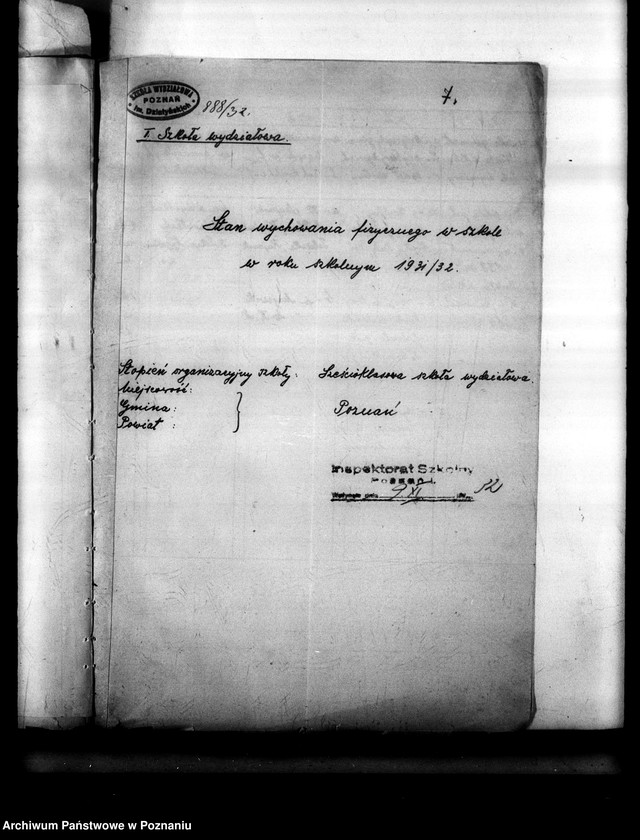 SZKOŁA WYDZIAŁOWA
POZNAŃ
im. Działyńskich
888/32.
7.
I Szkoła wydziałowa.
Stan wychowania fizycznego w szkole
w roku szkolnym 1931/32.
Stopień organizacyjny szkoły: Sześcioklasowa szkoła wydziałowa.
Miejscowość:
Gmina: } Poznań
Powiat :
Inspektorat Szkolny
Poznań I.
Wpłynęło dnia 9/XI 32
Archiwum Państwowe w Poznaniu